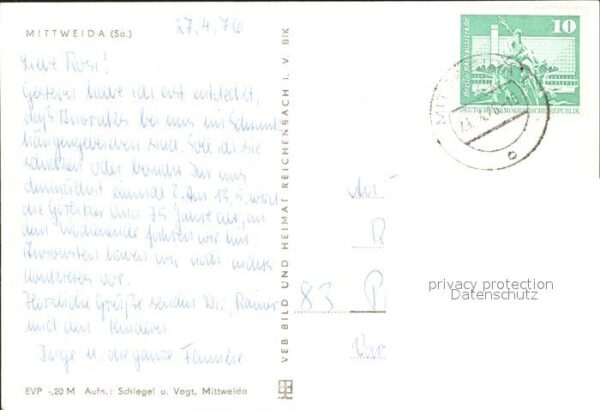 MITTWEIDA (Sa.)
27.4.76
Liebe Rosi!
Gestern habe ich erst entdeckt,
daß Anoraks bei uns im Schrank
hängengeblieben sind. Soll ich sie
schicken oder besucht Ihr uns
demnächst einmal? Am 13.5. wird
die Görlitzer Oma 75 Jahre alt, an
dem Wochenende fahren wir hin.
Ansonsten haben wir noch nichts
Konkretes vor.
Herzliche Grüße senden Dir, Rainer
und den Kindern
Inge u. die ganze Familie
EVP -,20 M Aufn.: Schlegel u. Vogt, Mittweida
VEB BILD UND HEIMAT REICHENBACH I. V. BIK
10
Berlin
DEUTSCHE DEMOKRATISCHE REPUBLIK
MITTWEIDA
83 P
privacy protection
Datenschutz